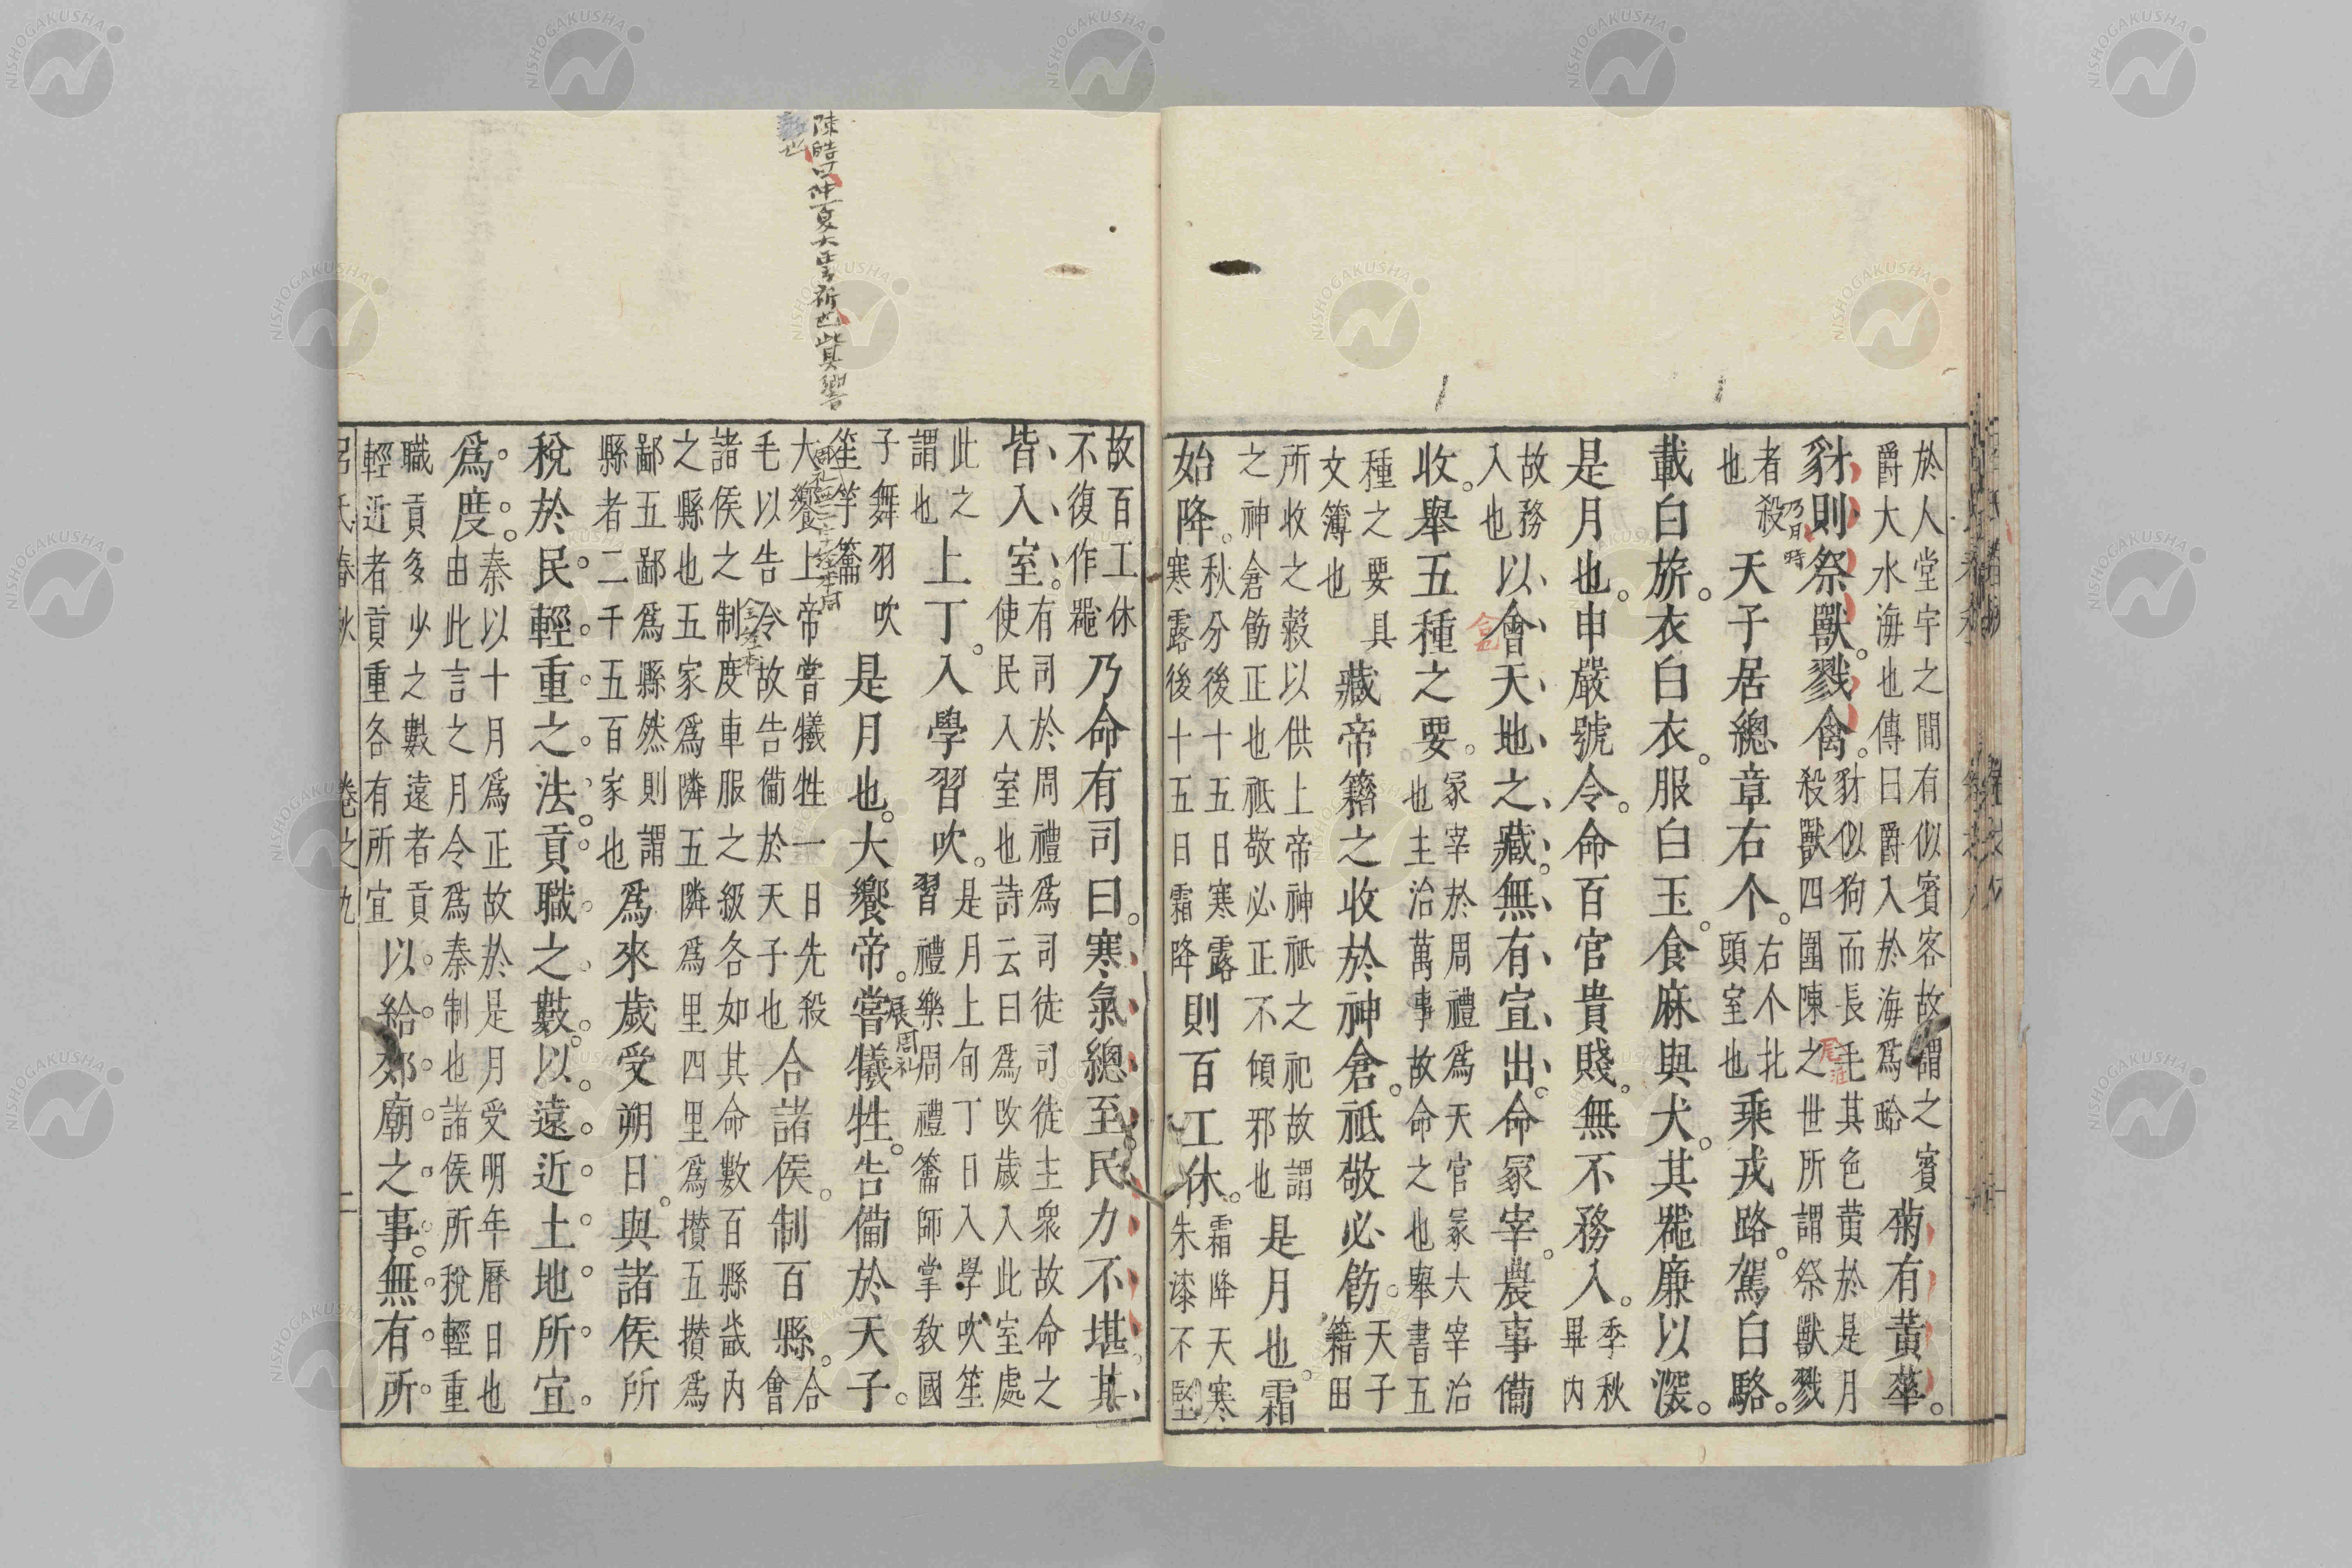 於人堂宇之間有似賓客故謂之賓
爵大水海也傳曰爵入於海爲蛤
菊有黃華。
豺則祭獸。戮禽。
豺似狗而長毛其色黄於是月
殺獸四圍陳之世所謂祭獸戮
者殺
也
乃月時
天子居總章右个。
右个北
頭室也
乘戎路。駕白駱。
載白旂。衣白衣。服白玉。食麻與犬。其噐廉以深。
是月也。申嚴號令。命百官貴賤。無不務入。
季秋
畢内
故務
入也
以會天地之藏。無有宣出。命冢宰。農事備
收。舉五種之要。
冢宰於周禮爲天官冢大宰治
也主治萬事故命之也舉書五
種之要具
文簿也
藏帝籍之收於神倉。祗敬必飭。
天子
籍田
所收之穀以供上帝神祇之祀故謂
之神倉飭正也祗敬必正不傾邪也
是月也。霜
始降。
秋分後十五日寒露
寒露後十五日霜降
則百工休。
霜降天寒
朱漆不堅
陳皓曰仲夏大雩祈也此其響
也
故百工休
不復作噐
乃命有司曰。寒氣總至民力不堪其
皆入室。
有司於周禮爲司徒司徒主衆故命之
使民入室也詩云曰爲改歲入此室處
此之
謂也
上丁。入學習吹。
是月上旬丁日入學吹笙
習禮樂周禮籥師掌敎國
子舞羽吹
笙竽籥
是月也。大饗帝。嘗犧牲。告備於天子。
大饗上帝嘗犧牲一日先殺
毛以告冷故告備於天子也
合諸侯。制百縣。
合
會
諸侯之制度車服之級各如其命數百縣畿内
之縣也五家爲隣五隣爲里四里爲攢五攢爲
鄙五鄙爲縣然則謂
縣者二千五百家也
爲來歲受朔日。與諸侯所
稅於民。輕重之法。貢職之數。以遠近土地所宜。
爲度。
秦以十月爲正故於是月受明年曆日也
由此言之月令爲秦制也諸侯所稅輕重
職貢多少之數遠者貢
輕近者貢重各有所宜
以給郊廟之事。無有所
呂氏春秋 卷之九 二